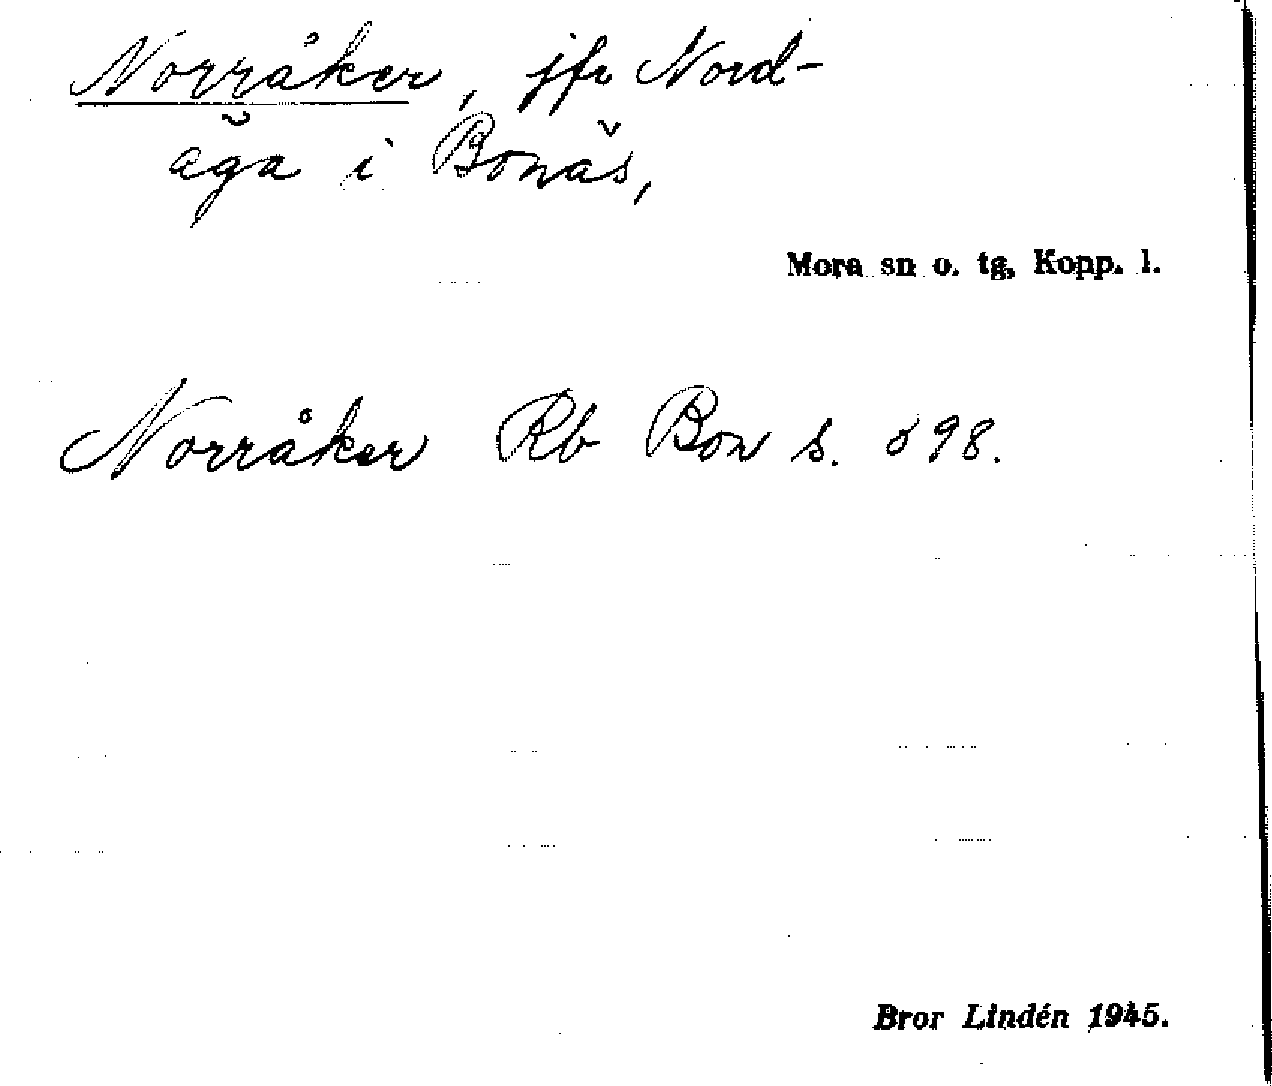 Norråker, jfr Nord-
äga i Bonäs,
Mora sn o. tg, Kopp. l.
Norråker Rb Bon s. 698.
Bror Lindén 1945.